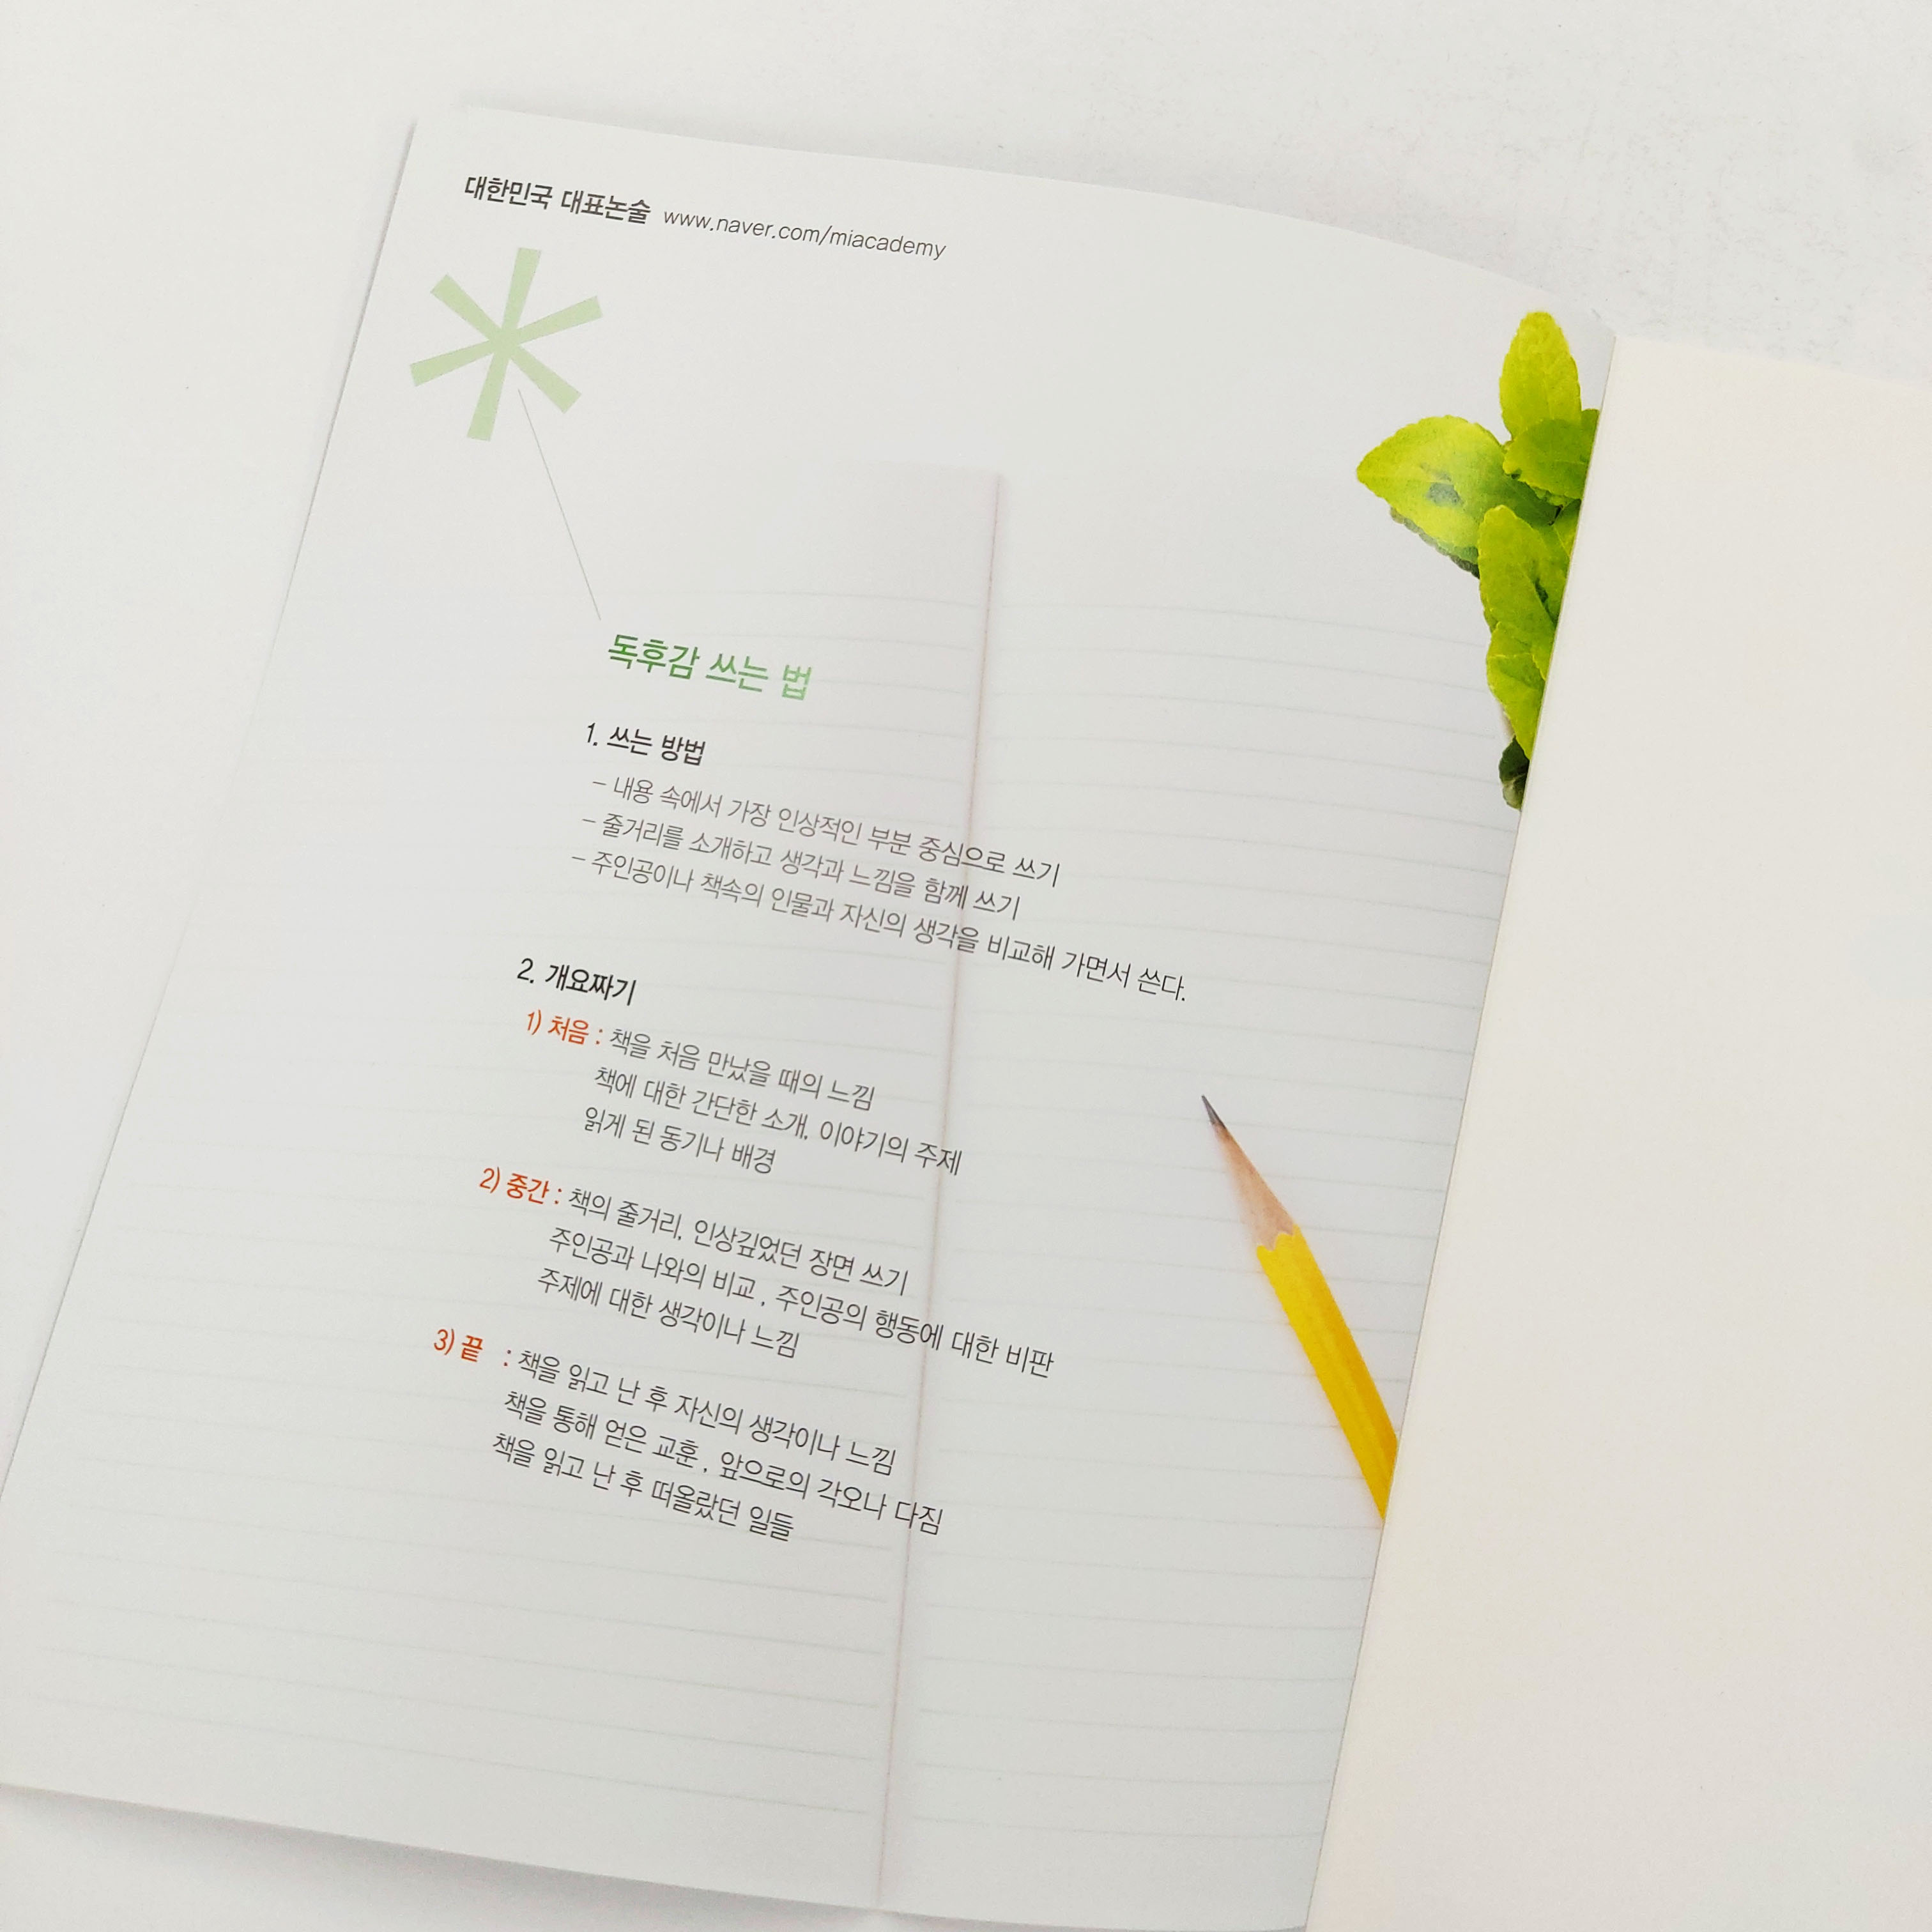 대한민국 대표논술 www.naver.com/miacademy
독후감 쓰는 법
1. 쓰는 방법
– 내용 속에서 가장 인상적인 부분 중심으로 쓰기
– 줄거리를 소개하고 생각과 느낌을 함께 쓰기
– 주인공이나 책속의 인물과 자신의 생각을 비교해 가면서 쓴다.
2. 개요짜기
1) 처음 : 책을 처음 만났을 때의 느낌
책에 대한 간단한 소개, 이야기의 주제
읽게 된 동기나 배경
2) 중간 : 책의 줄거리, 인상깊었던 장면 쓰기
주인공과 나와의 비교 , 주인공의 행동에 대한 비판
주제에 대한 생각이나 느낌
3) 끝 : 책을 읽고 난 후 자신의 생각이나 느낌
책을 통해 얻은 교훈 , 앞으로의 각오나 다짐
책을 읽고 난 후 떠올랐던 일들